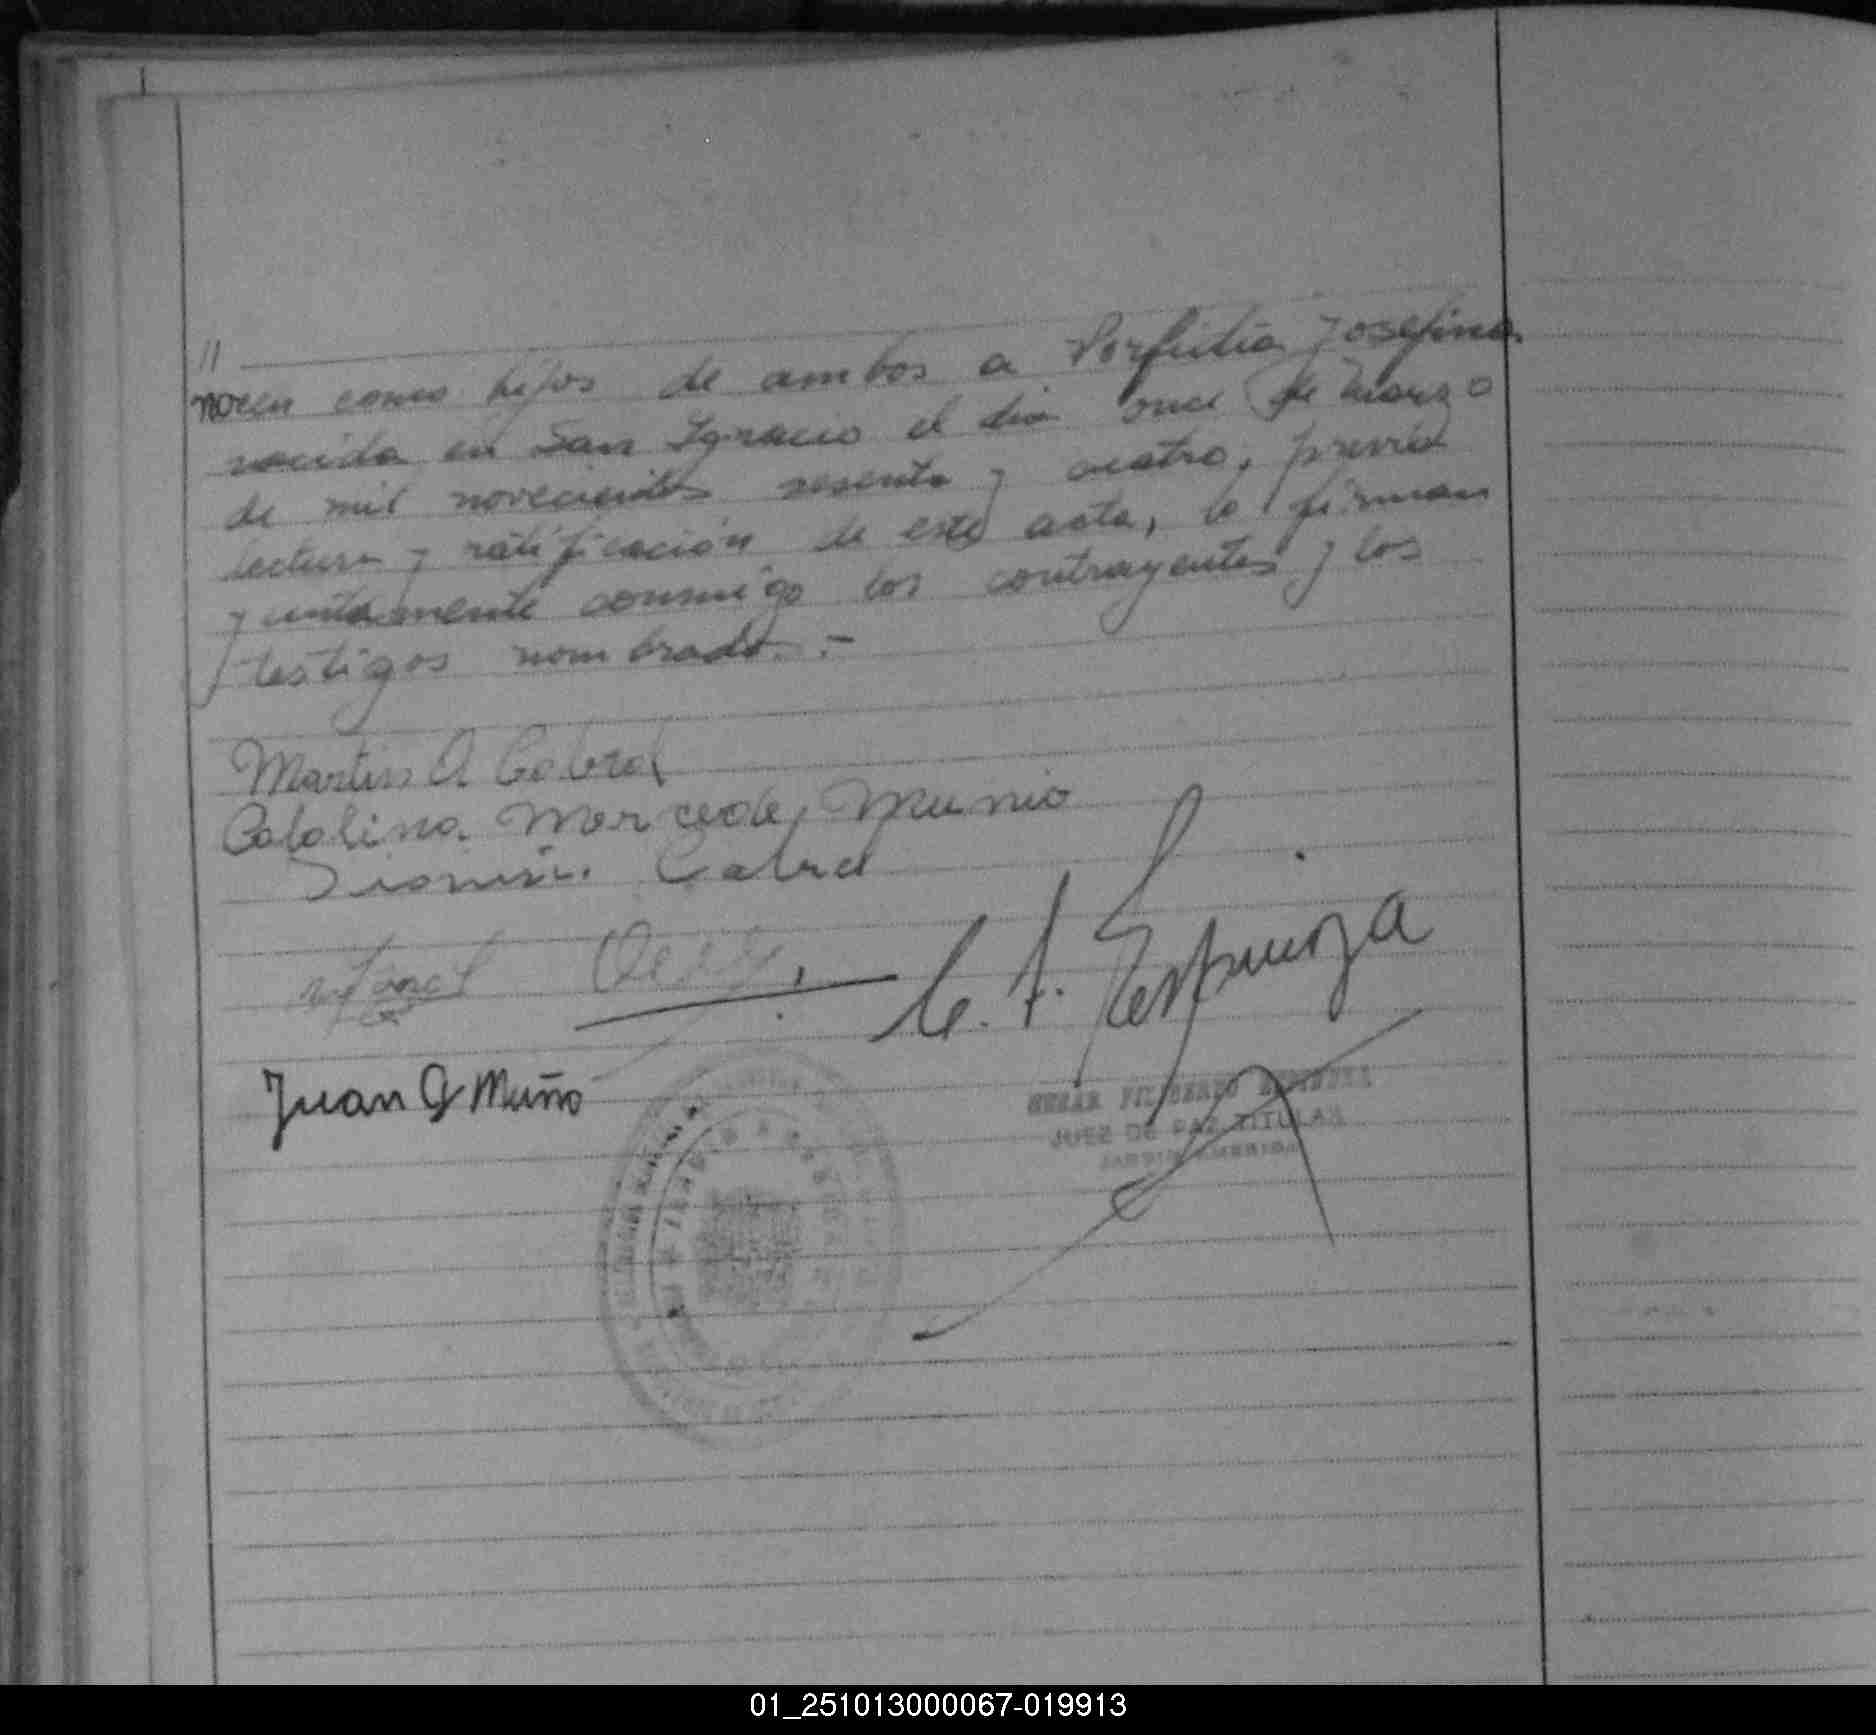 //
nocen como hijos de ambos a Porfiria Josefina
nacida en San Ignacio el dia once de marzo
de mil novecientos sesenta y cuatro, previa
lectura y ratificación de este acta, la firman
juntamente conmigo los contrayentes y los
testigos nombrados.-
Martin A Cabral
Catalina Mercede Munio
Dionisi Cabral
C. F. Espinoza
Juan G Muño
CESAR FILIBERTO ESPINOZA
JUEZ DE PAZ TITULAR
JARDIN AMERICA
01_251013000067-019913